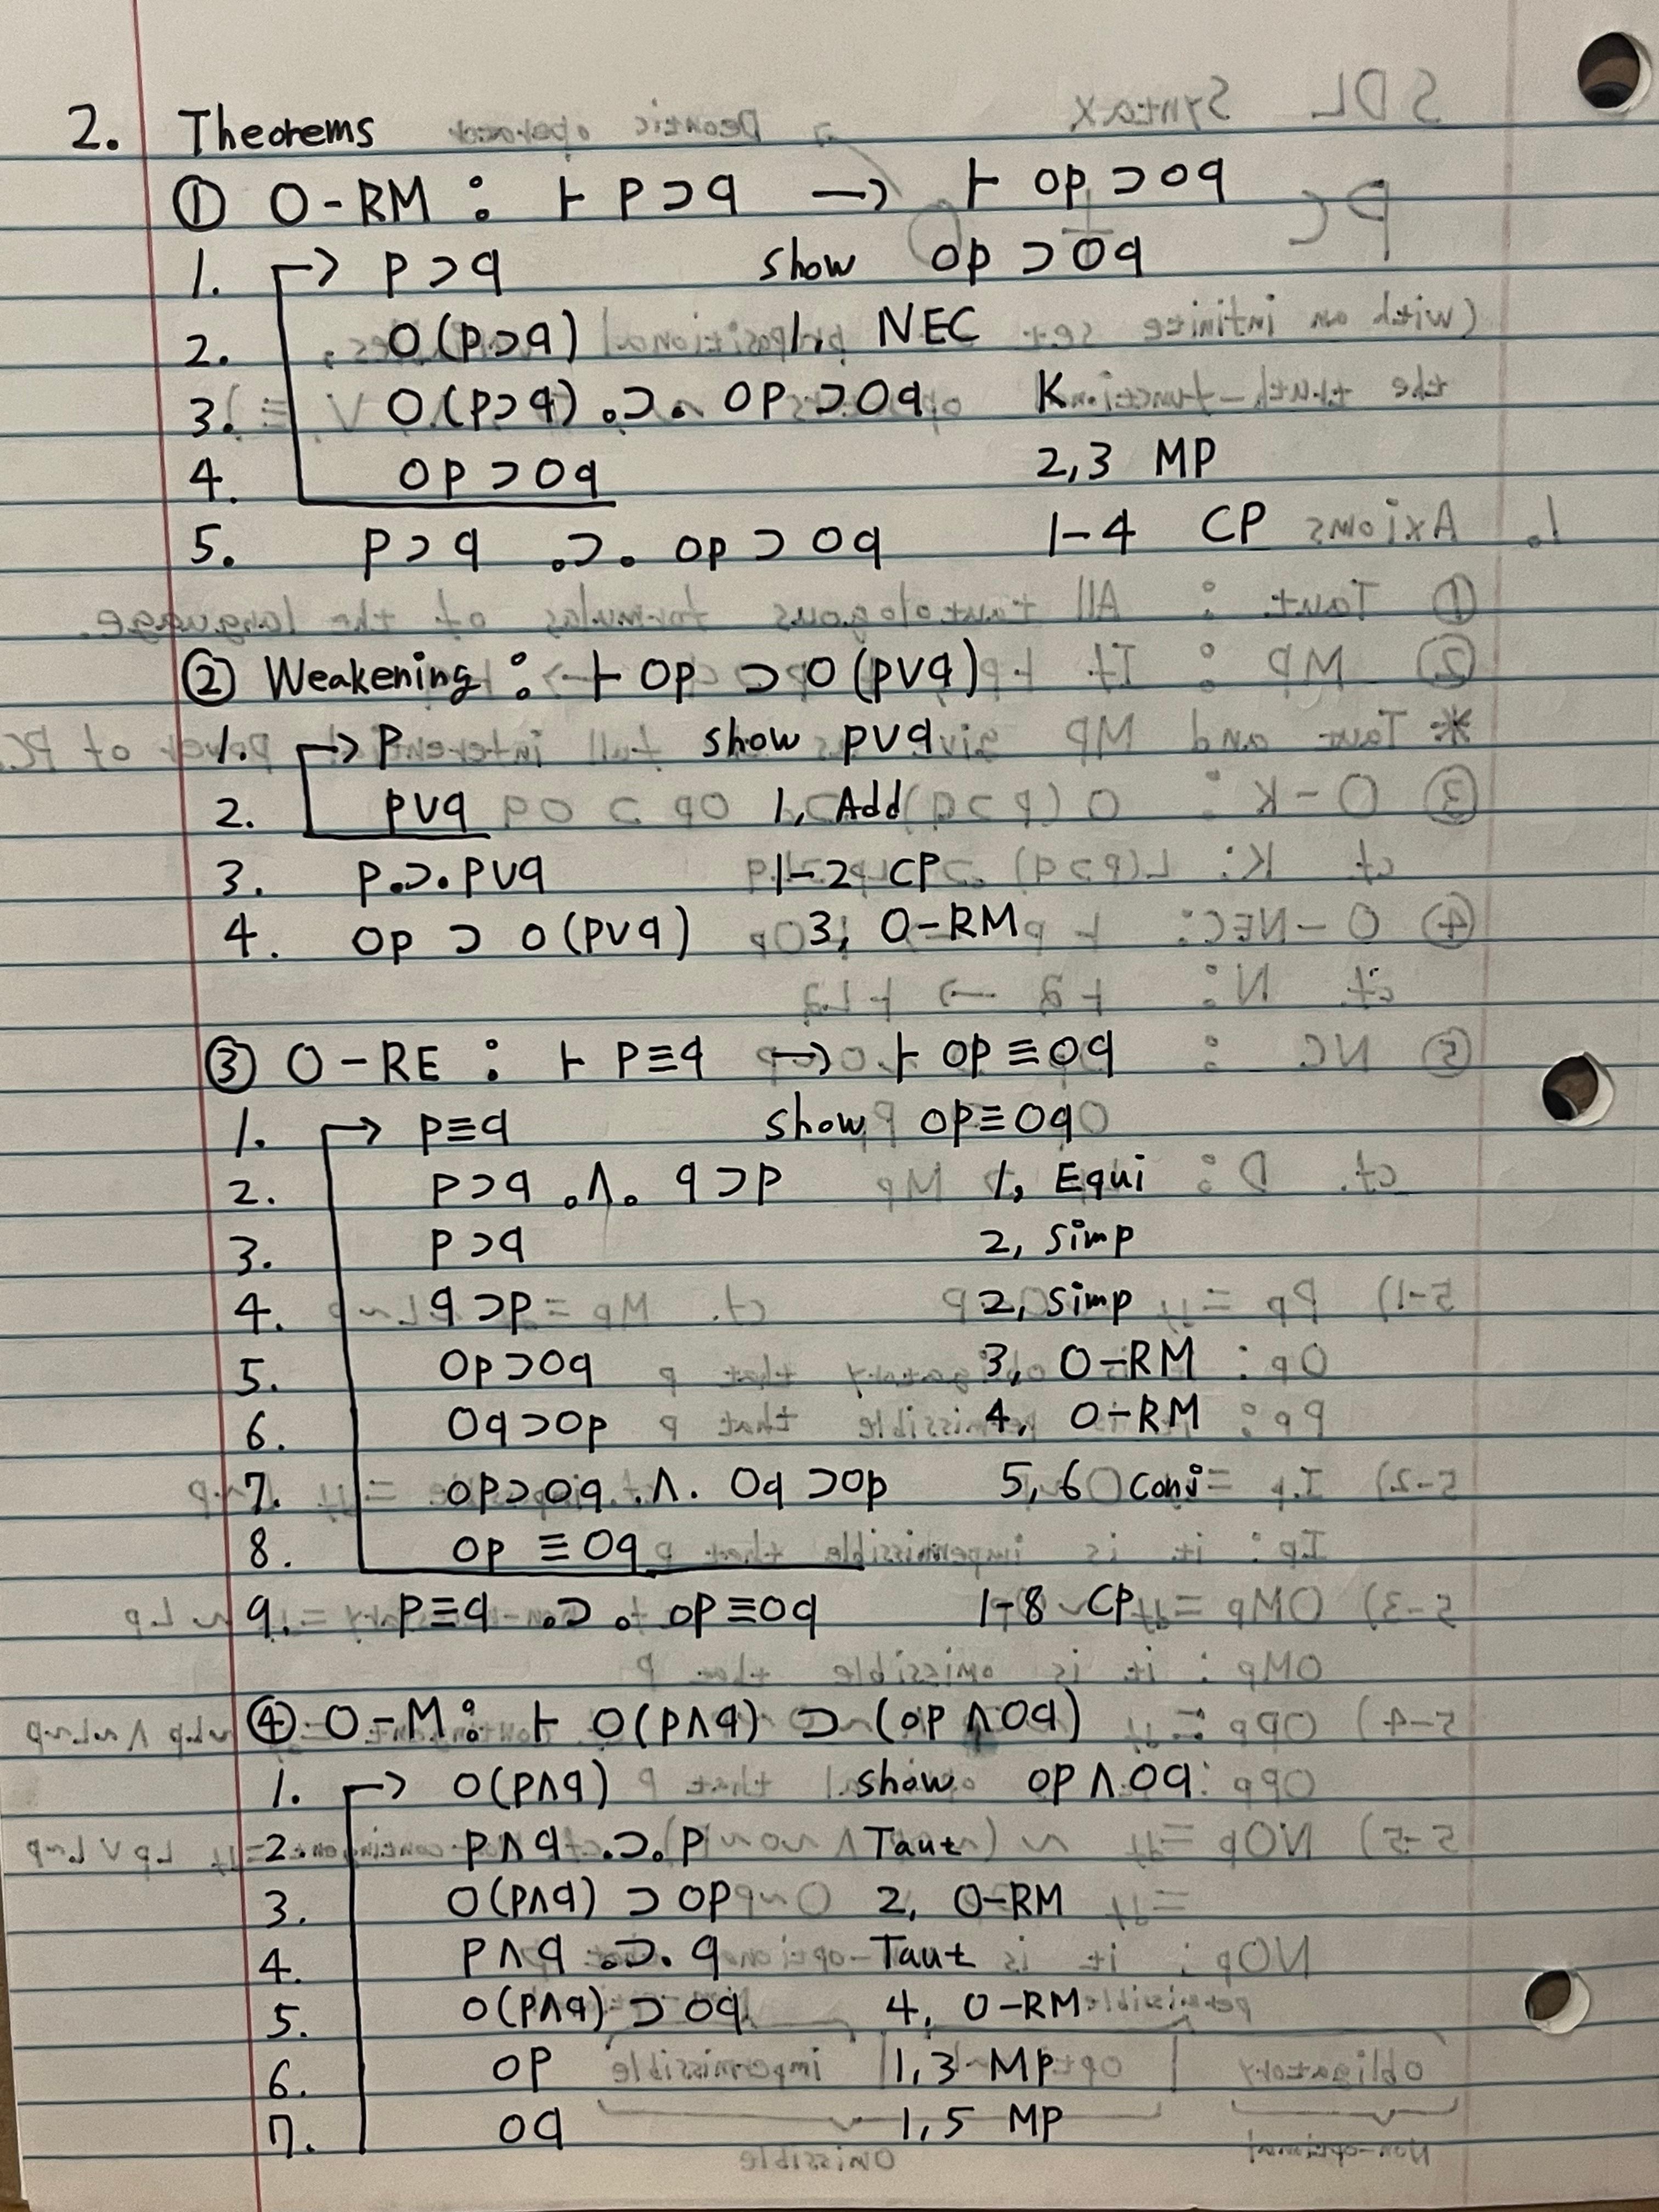 2. Theorems
① O-RM : ⊢ p⊃q → ⊢ Op⊃Oq
1. → p⊃q show Op⊃Oq
2. O(p⊃q) 1, NEC
3. O(p⊃q) .⊃. Op⊃Oq K
4. Op⊃Oq 2,3 MP
5. p⊃q .⊃. Op⊃Oq 1-4 CP
② Weakening : ⊢ Op ⊃ O(p∨q)
1. → p show p∨q
2. p∨q 1, Add
3. p.⊃.p∨q 1-2 CP
4. Op ⊃ O(p∨q) 3, O-RM
③ O-RE : ⊢ p≡q → ⊢ Op≡Oq
1. → p≡q show Op≡Oq
2. p⊃q .∧. q⊃p 1, Equi
3. p⊃q 2, Simp
4. q⊃p 2, Simp
5. Op⊃Oq 3, O-RM
6. Oq⊃Op 4, O-RM
7. Op⊃Oq .∧. Oq⊃Op 5,6 Conj
8. Op≡Oq
9. p≡q .⊃. Op≡Oq 1-8 CP
④ O-M : ⊢ O(p∧q) ⊃ (Op∧Oq)
1. → O(p∧q) show Op∧Oq
2. p∧q .⊃. p Taut
3. O(p∧q) ⊃ Op 2, O-RM
4. p∧q .⊃. q Taut
5. O(p∧q) ⊃ Oq 4, O-RM
6. Op 1,3 MP
7. Oq 1,5 MP